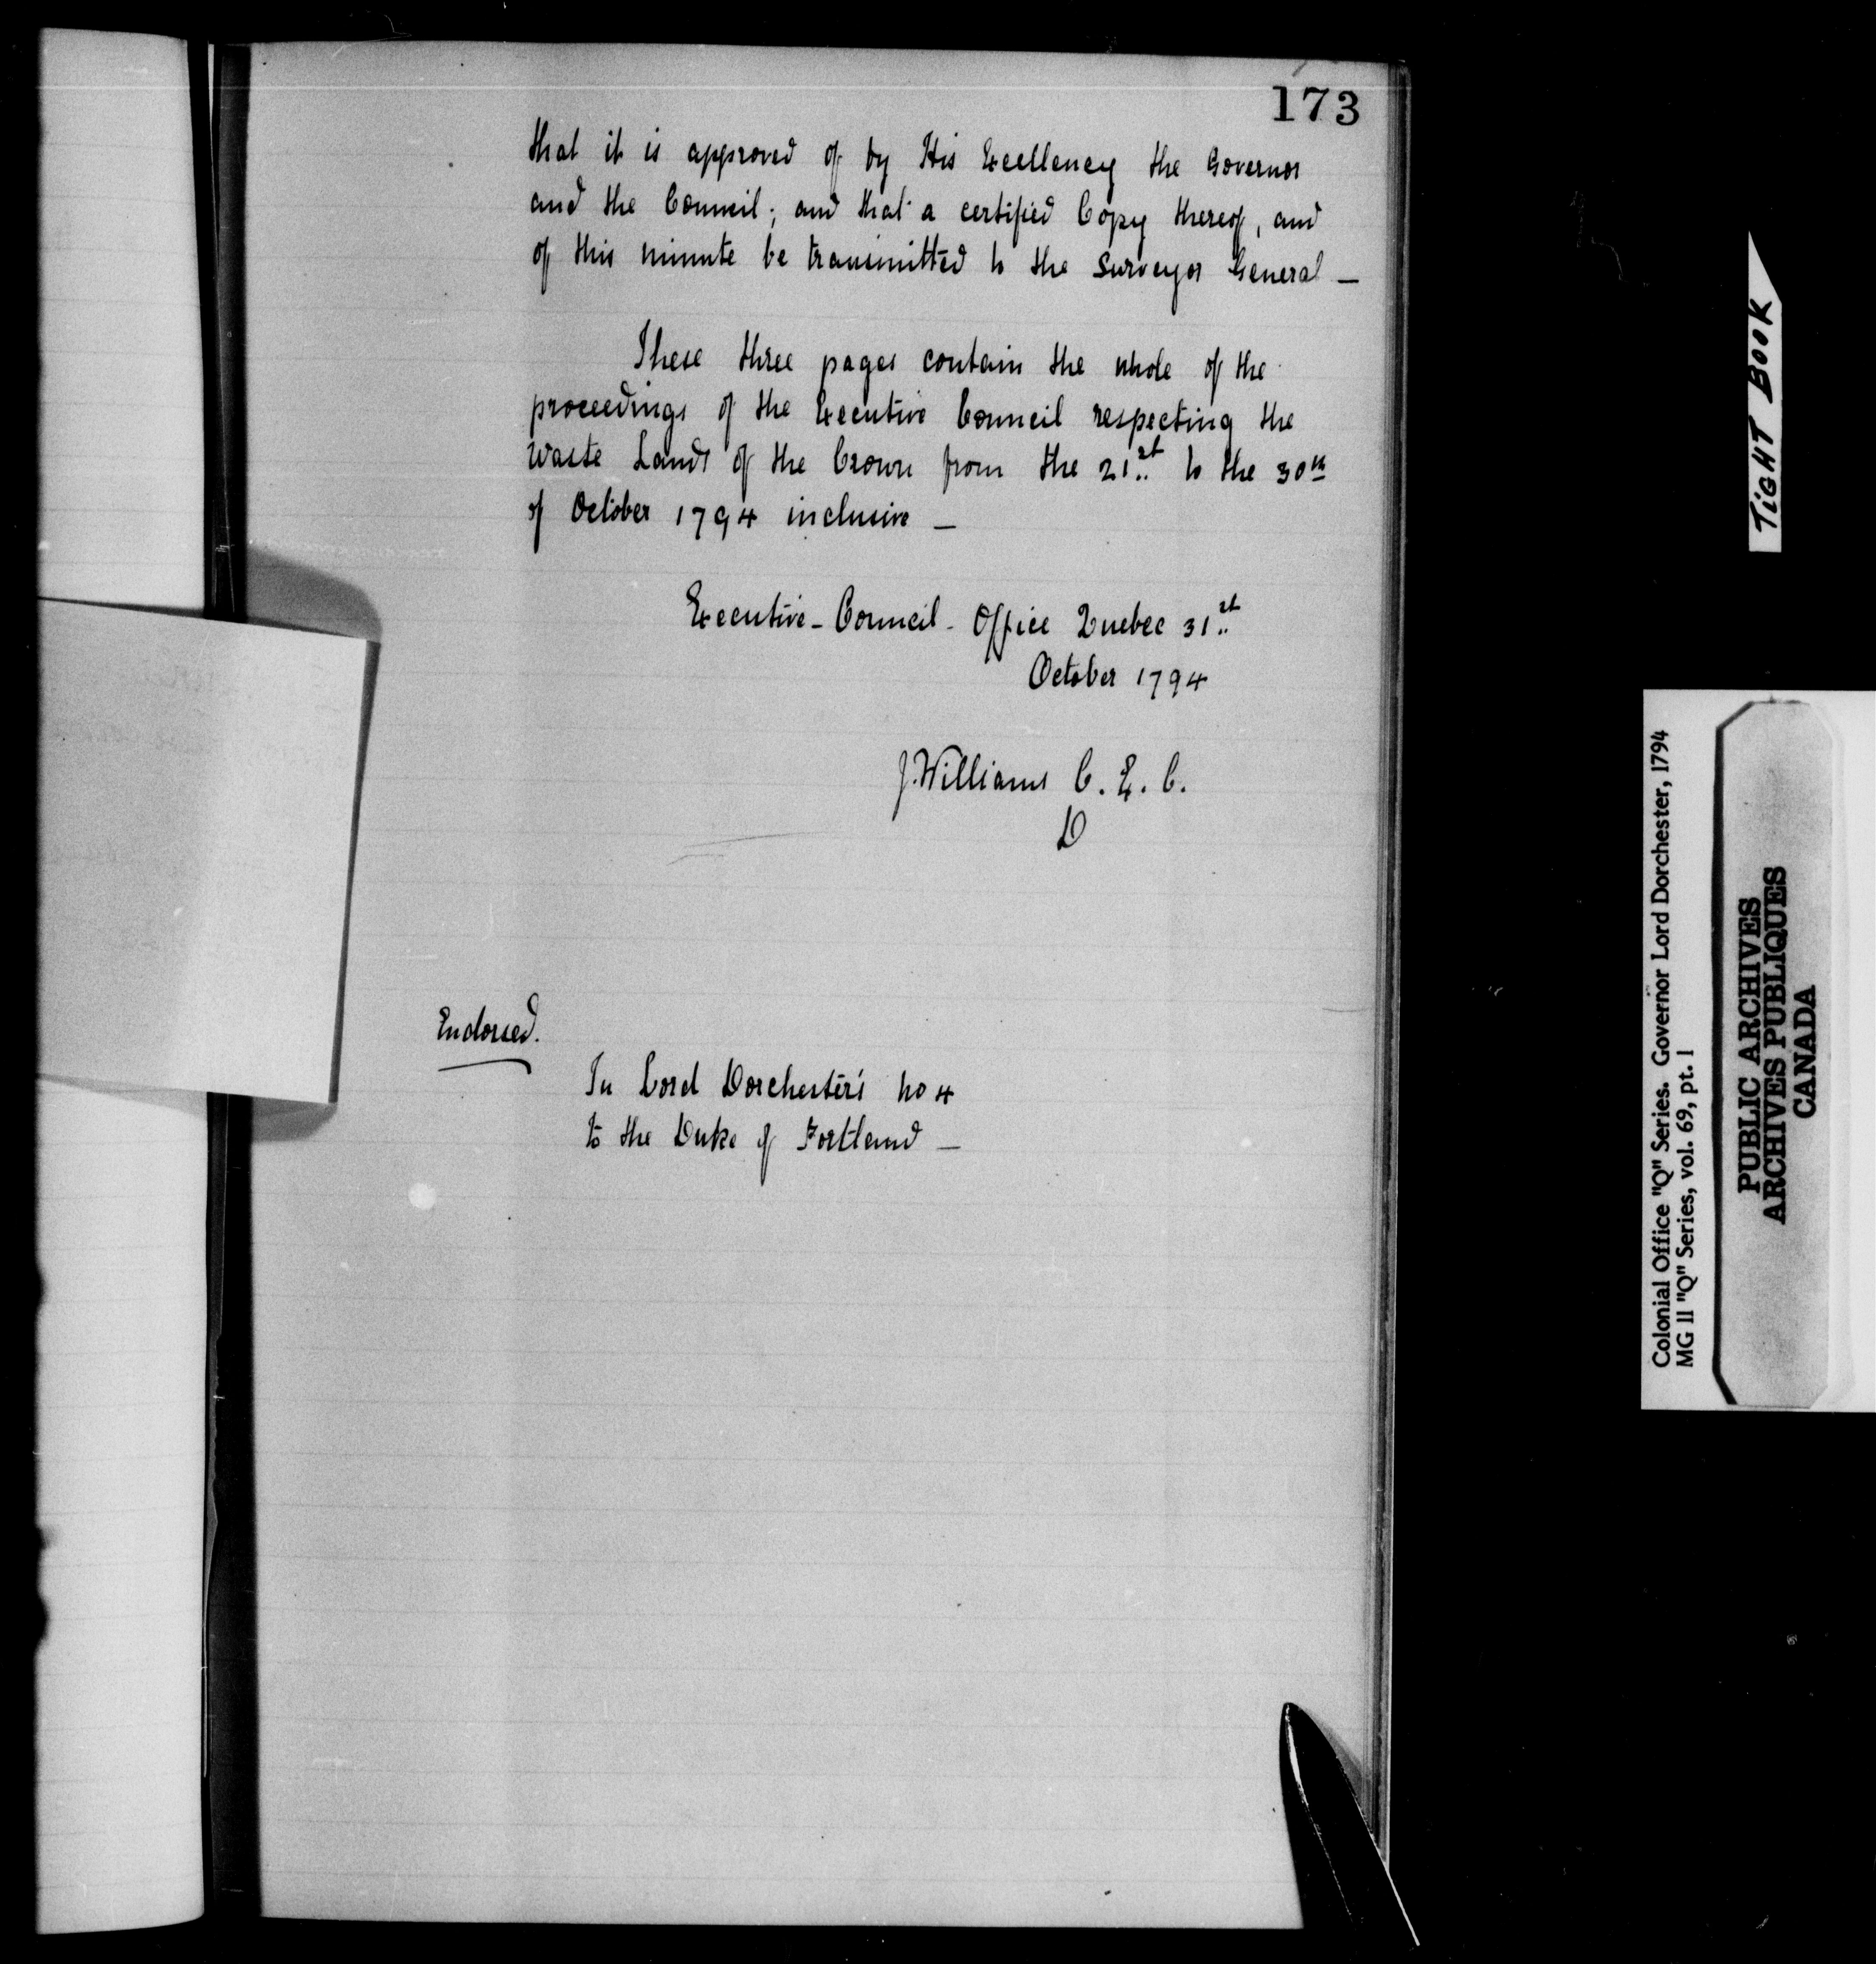 173
that it is approved of by His Excellency the Governor
and the Council; and that a certified Copy thereof, and
of this minute be transmitted to the Surveyor General —
These three pages contain the whole of the
proceedings of the Executive Council respecting the
Waste Lands of the Crown from the 21st to the 30th
of October 1794 inclusive —
Executive - Council - Office Quebec 31st
October 1794
J. Williams C. E. C.
D
Endorsed.
In Lord Dorchester's No 4
to the Duke of Portland —
TIGHT BOOK
Colonial Office "Q" Series. Governor Lord Dorchester, 1794
MG 11 "Q" Series, vol. 69, pt. 1
PUBLIC ARCHIVES
ARCHIVES PUBLIQUES
CANADA